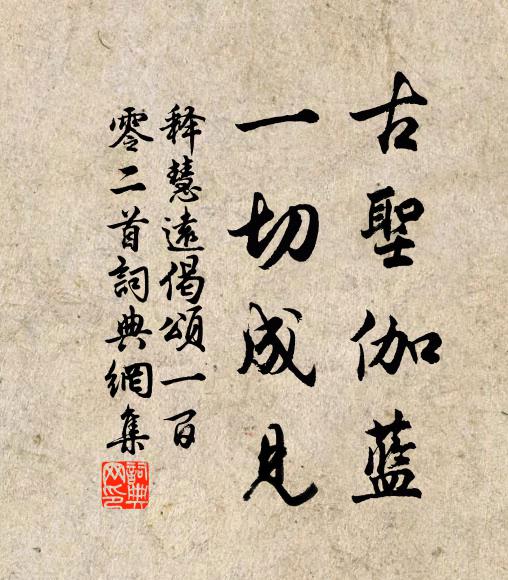 古聖伽藍
一切成見
释慧遠偈頌一百
零二首詞典網集
詞典网印